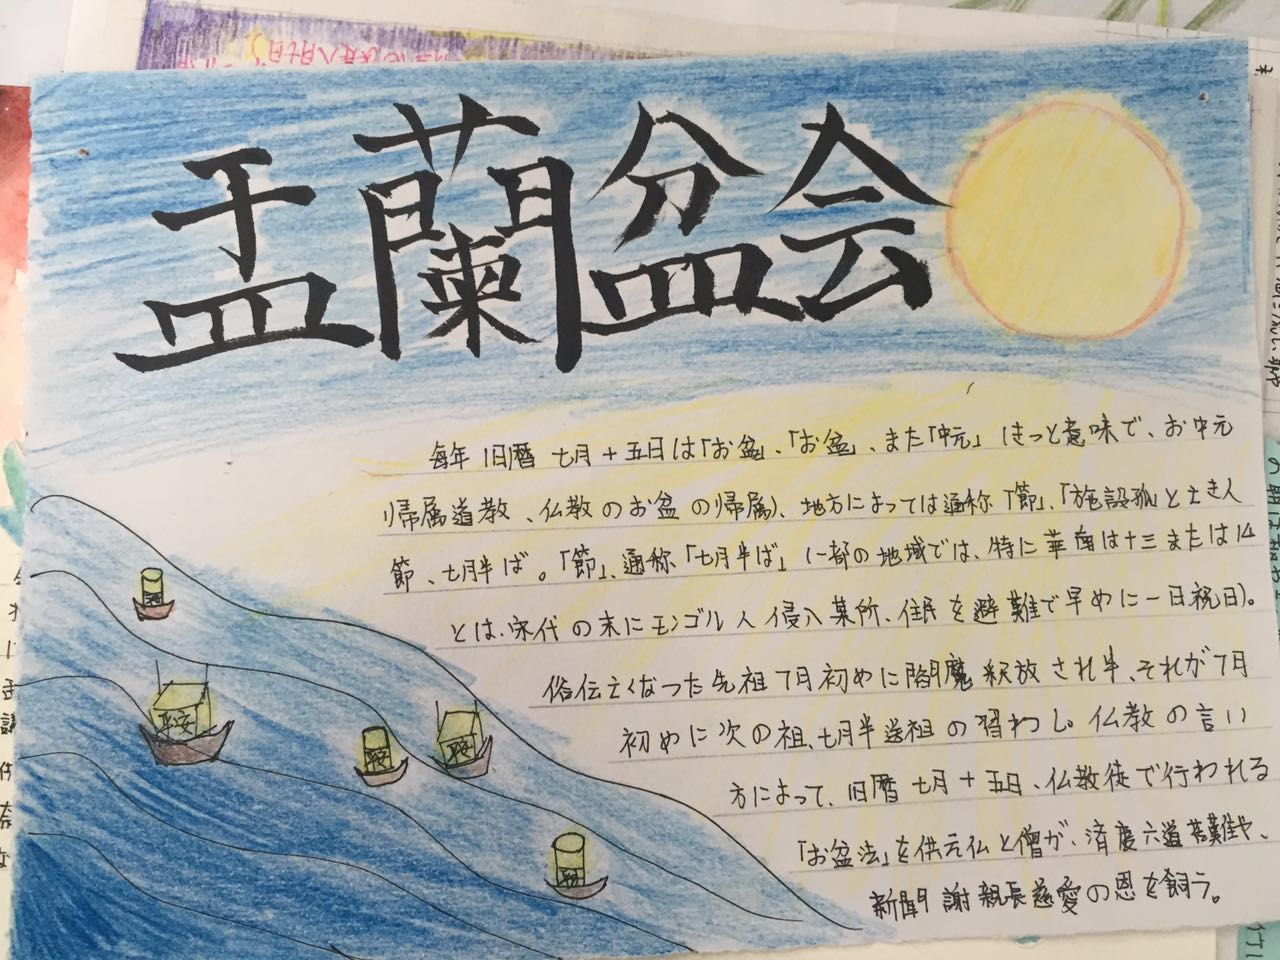 盂蘭盆会
毎年旧暦七月十五日は「お盆」、「お盆」、また「中元」はきっと意味で、お中元
帰属道教、仏教のお盆の帰属)、地方によっては通称「節」、「施設孤」と亡き人
節、七月半ば。「節」、通称「七月半ば」(一部の地域では、特に華南は十三または14
とは、宋代の末にモンゴル人侵入某所、住民を避難で早めに一日祝日)。
俗伝亡くなった先祖7月初めに閻魔釈放され半、それが7月
初めに次の祖、七月半送祖の習わし。仏教の言い
方によって、旧暦七月十五日、仏教徒で行われる
「お盆法」を供元仏と僧が、済度六道苦難や、
新聞謝親長慈愛の恩を飼う。
平安
平安
平安